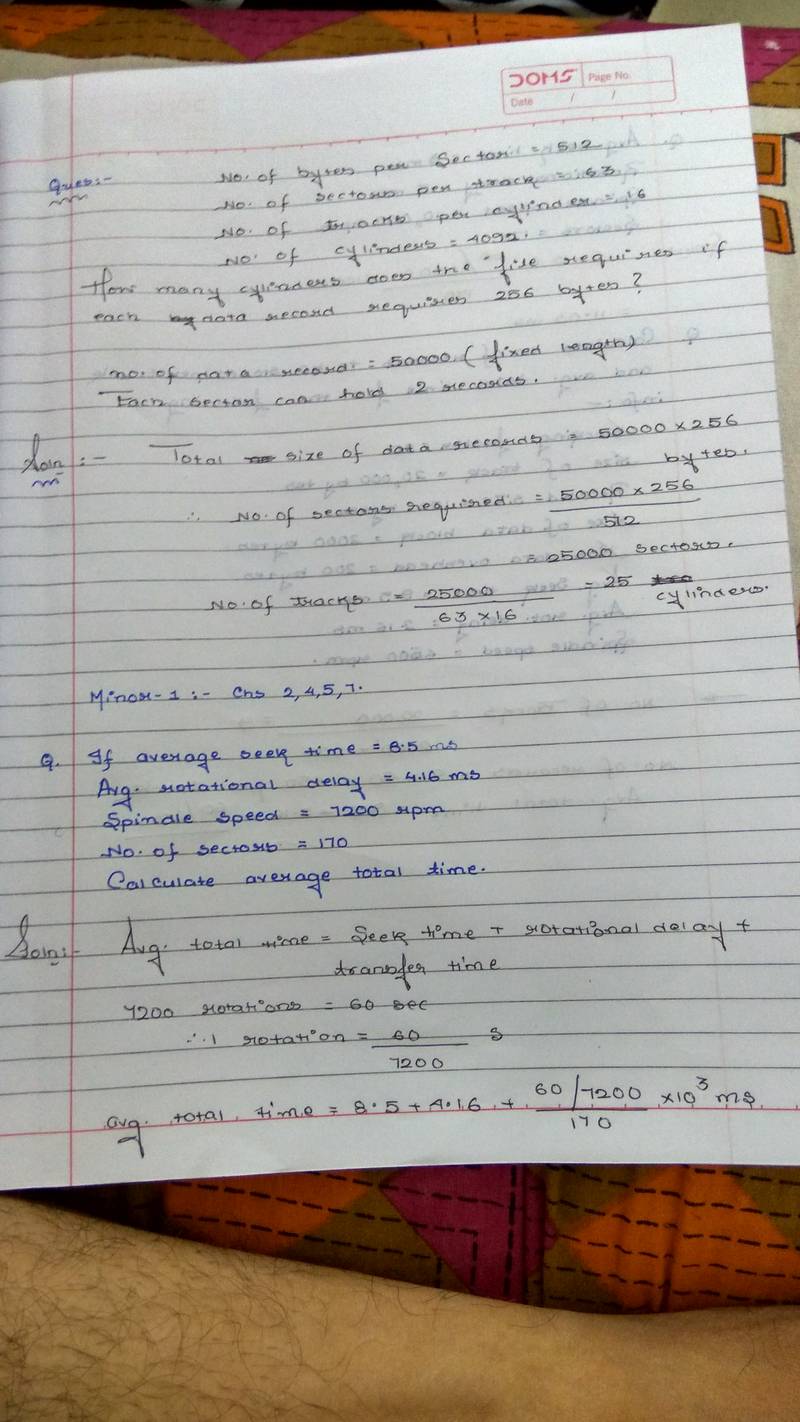 DOMS
Page No.
Date / /
Ques:- No. of bytes per Sector = 512
No. of sectors per track = 63
No. of tracks per cylinder = 16
No. of cylinders = 4092.
How many cylinders does the file requires if
each data record requires 256 bytes?
no. of data record = 50000 (fixed length)
Each sector can hold 2 records.
Soln :- Total size of data records = 50000 x 256
bytes.
∴ No. of sectors required = 50000 x 256
512
= 25000 sectors.
No. of tracks = 25000 = 25
63 x 16 cylinders.
Minor-1 :- Chs 2,4,5,7.
Q. If average seek time = 8.5 ms
Avg. rotational delay = 4.16 ms
Spindle speed = 7200 rpm
No. of sectors = 170
Calculate average total time.
Soln:- Avg. total time = Seek time + rotational delay +
transfer time
7200 rotations = 60 sec
∴ 1 rotation = 60 s
7200
avg. total time = 8.5 + 4.16 + 60/7200 x10³ ms
170